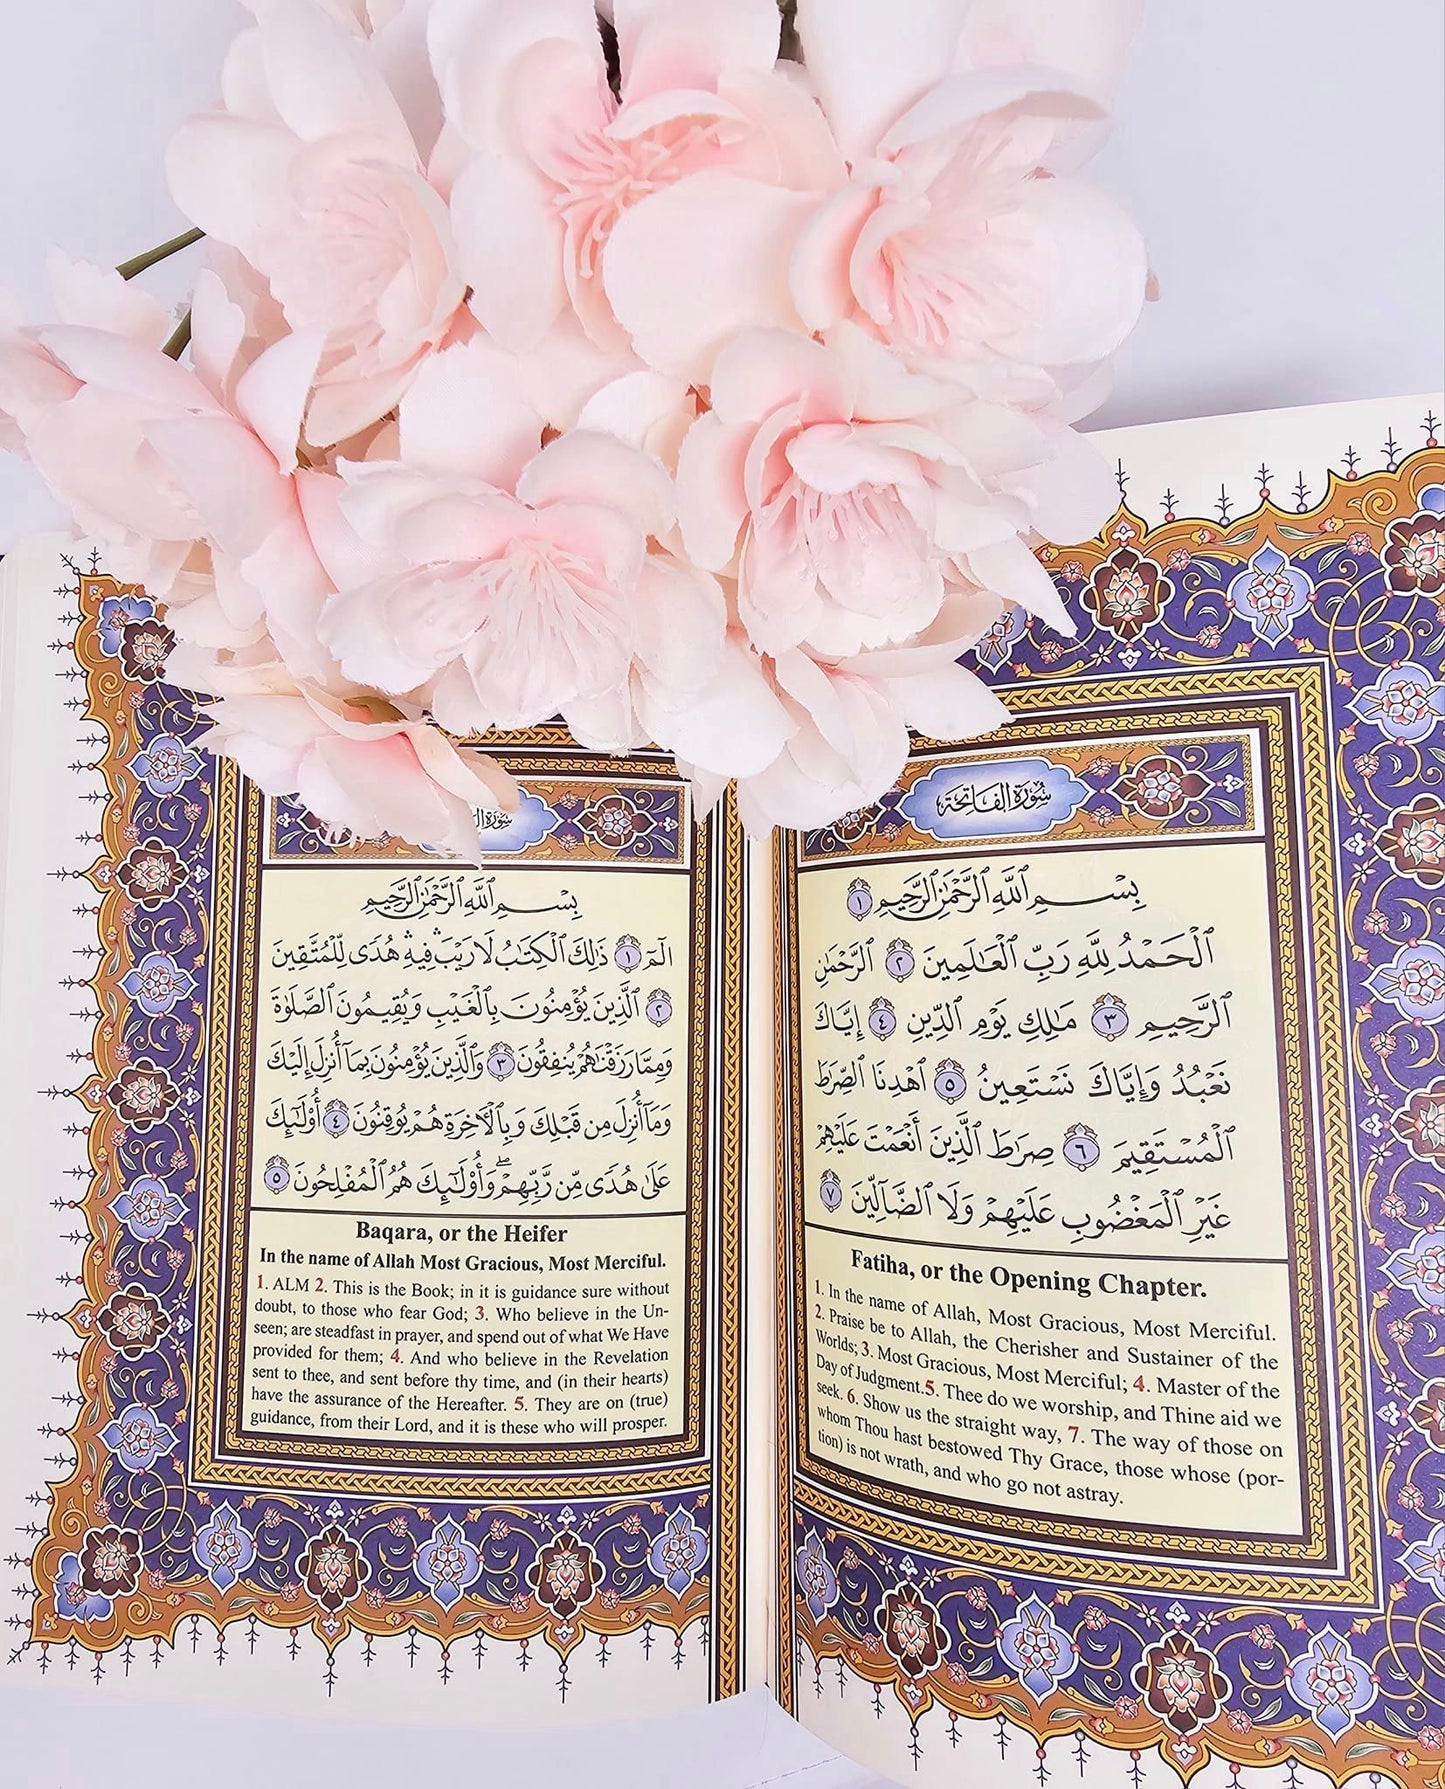 سُورَةُ الفَاتِحَة
بِسْمِ ٱللَّهِ ٱلرَّحْمَٰنِ ٱلرَّحِيمِ ١
ٱلْحَمْدُ لِلَّهِ رَبِّ ٱلْعَٰلَمِينَ ٢ ٱلرَّحْمَٰنِ
ٱلرَّحِيمِ ٣ مَٰلِكِ يَوْمِ ٱلدِّينِ ٤ إِيَّاكَ
نَعْبُدُ وَإِيَّاكَ نَسْتَعِينُ ٥ ٱهْدِنَا ٱلصِّرَٰطَ
ٱلْمُسْتَقِيمَ ٦ صِرَٰطَ ٱلَّذِينَ أَنْعَمْتَ عَلَيْهِمْ
غَيْرِ ٱلْمَغْضُوبِ عَلَيْهِمْ وَلَا ٱلضَّآلِّينَ ٧
Fatiha, or the Opening Chapter.
1. In the name of Allah, Most Gracious, Most Merciful.
2. Praise be to Allah, the Cherisher and Sustainer of the
Worlds; 3. Most Gracious, Most Merciful; 4. Master of the
Day of Judgment.5. Thee do we worship, and Thine aid we
seek. 6. Show us the straight way, 7. The way of those on
whom Thou hast bestowed Thy Grace, those whose (por-
tion) is not wrath, and who go not astray.
سُورَةُ
بِسْمِ ٱللَّهِ ٱلرَّحْمَٰنِ ٱلرَّحِيمِ
الٓمٓ ١ ذَٰلِكَ ٱلْكِتَٰبُ لَا رَيْبَۛ فِيهِۛ هُدًى لِّلْمُتَّقِينَ
٢ ٱلَّذِينَ يُؤْمِنُونَ بِٱلْغَيْبِ وَيُقِيمُونَ ٱلصَّلَوٰةَ
وَمِمَّا رَزَقْنَٰهُمْ يُنفِقُونَ ٣ وَٱلَّذِينَ يُؤْمِنُونَ بِمَآ أُنزِلَ إِلَيْكَ
وَمَآ أُنزِلَ مِن قَبْلِكَ وَبِٱلْأَخِرَةِ هُمْ يُوقِنُونَ ٤ أُو۟لَٰٓئِكَ
عَلَىٰ هُدًى مِّن رَّبِّهِمْۖ وَأُو۟لَٰٓئِكَ هُمُ ٱلْمُفْلِحُونَ ٥
Baqara, or the Heifer
In the name of Allah Most Gracious, Most Merciful.
1. ALM 2. This is the Book; in it is guidance sure without
doubt, to those who fear God; 3. Who believe in the Un-
seen; are steadfast in prayer, and spend out of what We Have
provided for them; 4. And who believe in the Revelation
sent to thee, and sent before thy time, and (in their hearts)
have the assurance of the Hereafter. 5. They are on (true)
guidance, from their Lord, and it is these who will prosper.